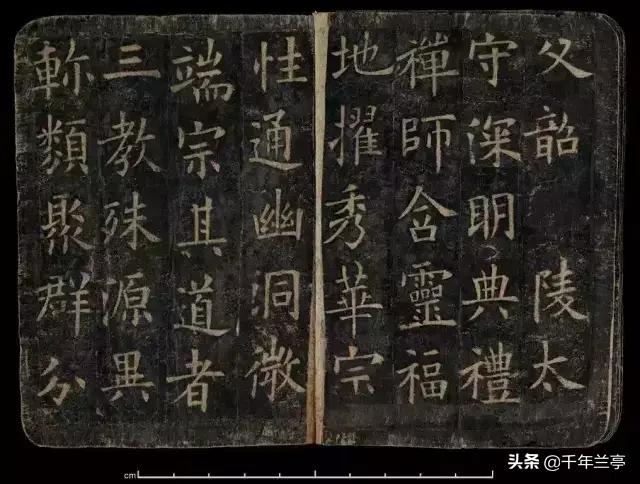 父韶 陵太
守深明典禮
禪師含靈福
地擢秀華宗
性通幽洞微
端宗其道者
三教殊源異
軫類聚群分
cm
头条 @千年兰亭